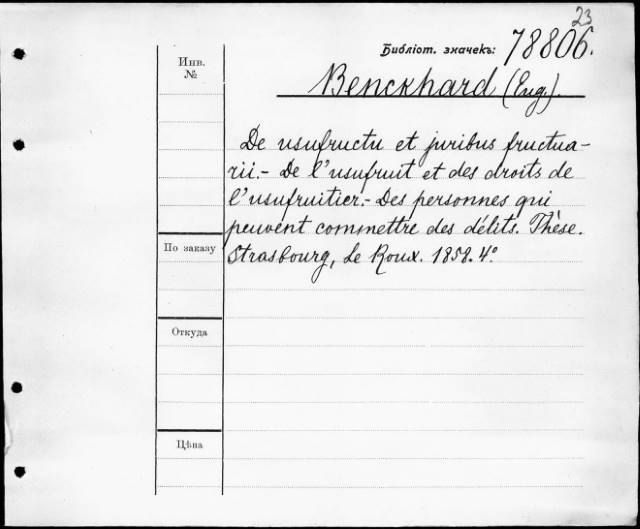 23
Библіот. значекъ: 78806.
Инв.
№
Benckhard (Eug.).
De usufructu et juribus fructua-
rii.- De l'usufruit et des droits de
l'usufruitier.- Des personnes qui
peuvent commettre des délits. Thèse.
По заказу
Strasbourg, Le Roux. 1858. 4°
Откуда
Цѣна